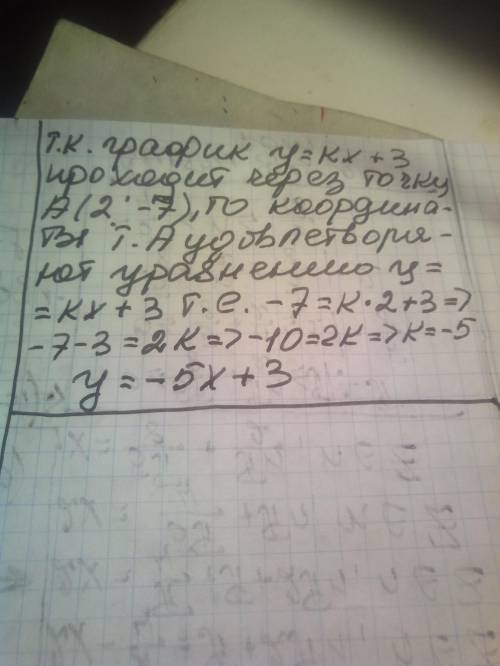 т.к. график y=кх+3
проходит через точку
А(2;-7), то координа-
ты т.А удовлетворя-
ют уравнению y=
=кх+3 т.е. -7=к·2+3=>
-7-3=2к=>-10=2к=>к=-5
y=-5х+3